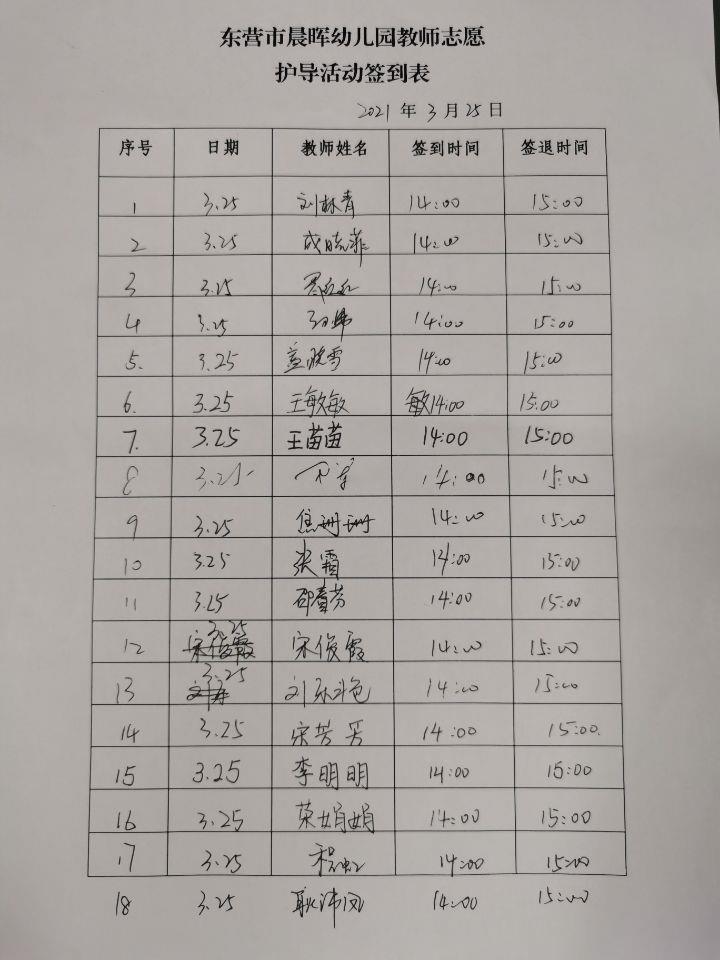 东营市晨晖幼儿园教师志愿
护导活动签到表
2021 年 3 月 25 日
序号 日期 教师姓名 签到时间 签退时间
1 3.25 刘林青 14:00 15:00
2 3.25 成晓菲 14:00 15:00
3 3.25 14:00 15:00
4 3.25 14:00 15:00
5. 3.25 盖晓雪 14:00 15:00
6. 3.25 王敏敏 敏14:00 15:00
7. 3.25 王苗苗 14:00 15:00
8 3.25 14:00 15:00
9 3.25 焦珊珊 14:00 15:00
10 3.25 张霜 14:00 15:00
11 3.25 邵芳 14:00 15:00
12 3.25 宋俊霞 14:00 15:00
13 3.25 刘 14:00 15:00
14 3.25 宋芳芳 14:00 15:00.
15 3.25 李明明 14:00 15:00
16 3.25 荣娟娟 14:00 15:00
17 3.25 14:00 15:00
18 3.25 耿凤 14:00 15:00